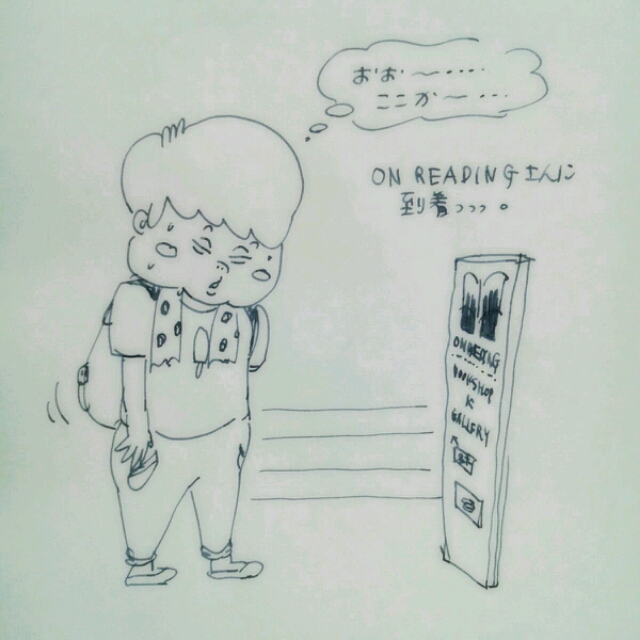 おお〜・・・・・
ここか〜・・・
ON READINGさんに
到着っっっ。
ON READING
BOOKSHOP
&
GALLERY